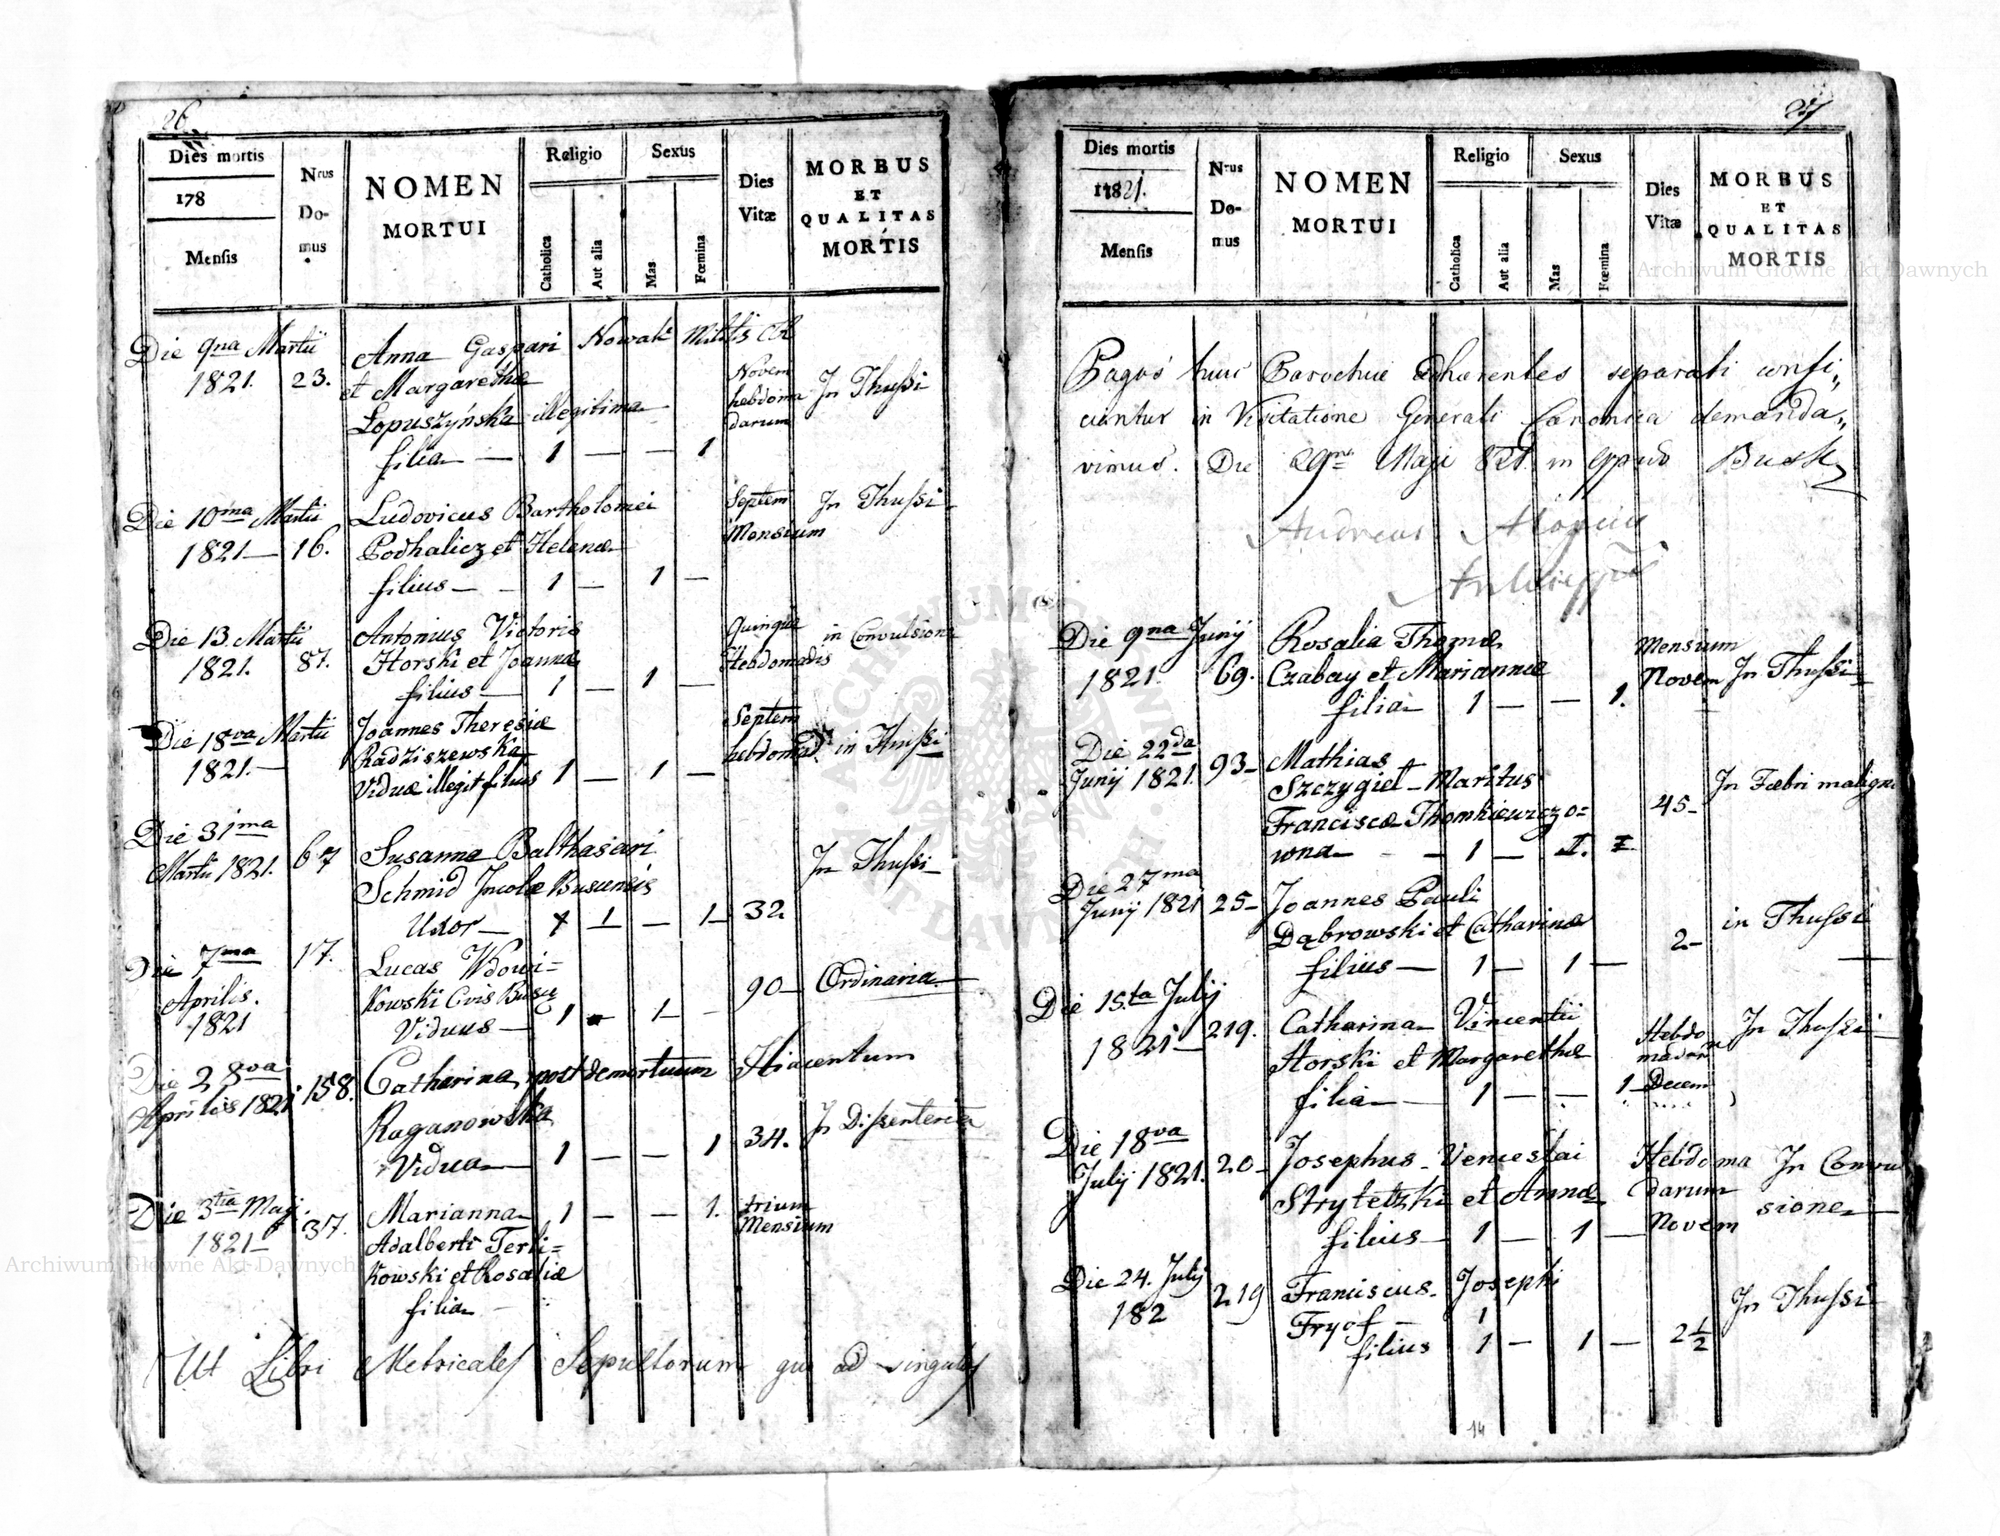 26
Dies mortis
178
Mensis
Nrus Domus
NOMEN
MORTUI
Religio
Catholica
Aut alia
Sexus
Mas
Fœmina
Dies
Vitæ
MORBUS
ET
QUALITAS
MORTIS
Die 9na Martii 1821. 23.
Anna Gaspari Nowak Militis
et Margarethæ
Lopuszyńska illegitima
filia — 1 — — 1
Novem
hebdoma
darum
In Thussi
Die 10ma Martii 1821 — 16.
Ludovicus Bartholomei
Podhalicz et Helenæ
filius — 1 — 1 —
Septem
Mensium
In Thussi
Die 13 Martii 1821. 87.
Antonius Victoris
Horski et Joannæ
filius — 1 — 1 —
Quinque
Hebdomadis
in Convulsione
Die 18va Martii 1821. —
Joannes Theresiæ
Radziszewska
Viduæ illegit filius 1 — 1 —
Septem
hebdomad.
in Thussi
Die 31ma
Martii 1821. 67
Susanna Balthasari
Schmid Incolæ Buscensis
Uxor — 1 — 1 — 32
In Thussi
Die 7ma
Aprilis.
1821
17.
Lucas Wdowi=
kowski Civis Busc
Viduus — 1 1 — 90 —
Ordinaria
Die 28va
Aprilis 1821 158.
Catharina post demortuum Hiacentum
Raganowska
Vidua — 1 — — 1 34.
In Dissenteria
Die 3tia Maji
1821 — 37.
Marianna 1 — — 1.
Adalberti Terli=
kowski et Rosaliæ
filia
trium
Mensium
Ut Libri Metricales Sepultorum quo ad singulos
27
Dies mortis
1821.
Mensis
Nrus Domus
NOMEN
MORTUI
Religio
Catholica
Aut alia
Sexus
Mas
Fœmina
Dies
Vitæ
MORBUS
ET
QUALITAS
MORTIS
Pagos huic Parochiæ adhærentes separati confi„
ciantur in Visitatione Generali Canonica demanda„
vimus. Die 29na Maji 821. in oppido Busk
Andreas
Die 9na Junij
1821 69.
Rosalia Thomæ
Czabay et Mariannæ
filia 1 — — 1.
Mensium
Novem
In Thussi
Die 22da
Junij 1821. 93 —
Mathias
Szczygieł — Maritus
Franciscæ Thomkiewiczo=
wna — 1 — 1.
45 —
In Febri maligna
Die 27ma
Junij 1821 25 —
Joannes Pauli
Dąbrowski et Catharinæ
filius — 1 — 1 —
2 —
in Thussi
Die 15.ta Julij
1821 — 219.
Catharina Vincentii
Horski et Margarethæ
filia — 1 — — 1
Hebdo
madarum
Decem
In Thussi
Die 18va
Julij 1821. 20 —
Josephus Venceslai
Strytetzki et Annæ
filius — 1 — 1 —
Hebdoma
darum
Novem
In Convul
sione
Die 24. Julij
182 219
Franciscus Josephi
Fryof — 1
filius 1 — 1 — 2 1/2
In Thussi
14
Archiwum Główne Akt Dawnych
Archiwum Główne Akt Dawnych